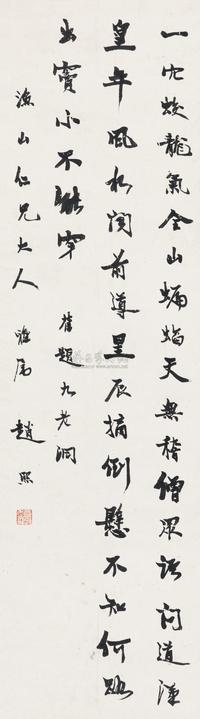 一穴蛟龍氣全山蝙蝠天無稽僧眾語問道漢
皇年風前導星辰摘倒懸不知何路
出竇小不能穿 舊題九老洞
漁山仁兄大人 雅屬 趙熙